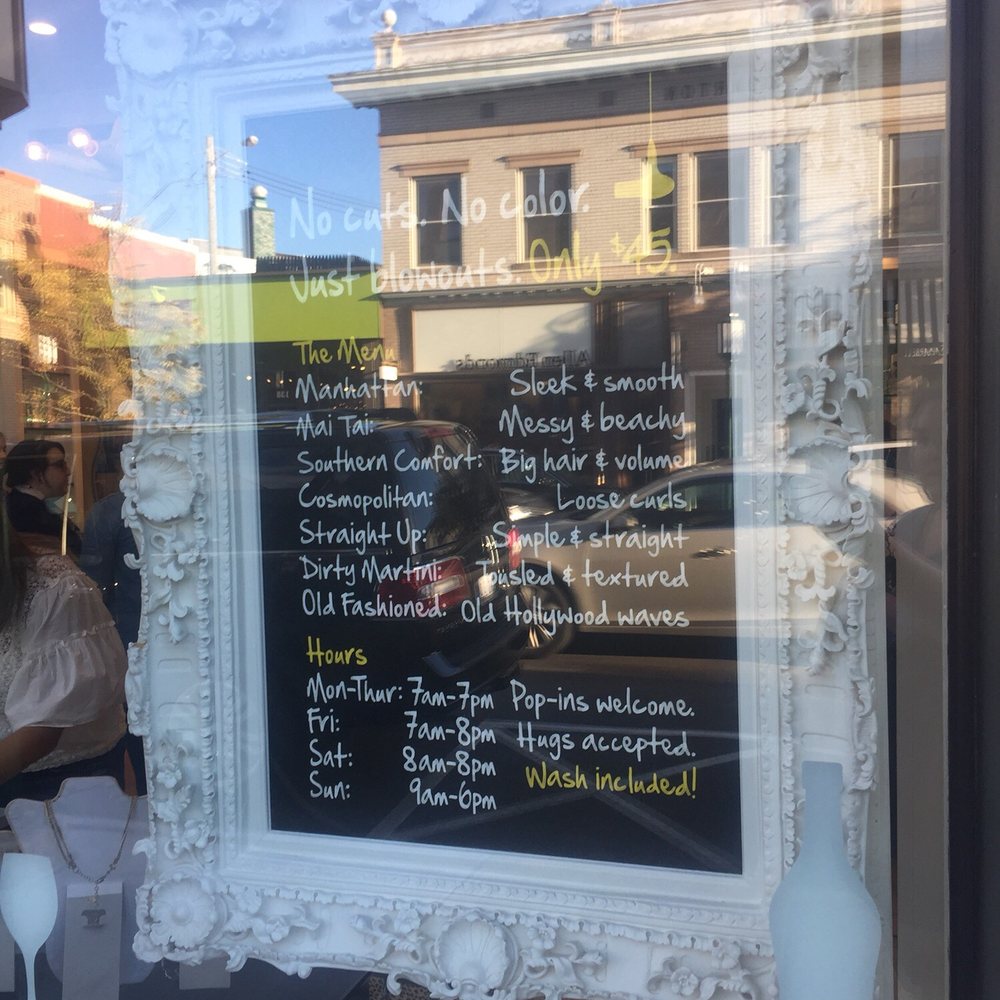 No cuts. No color.
Just blowouts. Only $45.
The Menu
Manhattan: Sleek & smooth
Mai Tai: Messy & beachy
Southern Comfort: Big hair & volume
Cosmopolitan: Loose curls
Straight Up: Simple & straight
Dirty Martini: Tousled & textured
Old Fashioned: Old Hollywood waves
Hours
Mon-Thur: 7am-7pm Pop-ins welcome.
Fri: 7am-8pm Hugs accepted.
Sat: 8am-8pm Wash included!
Sun: 9am-6pm